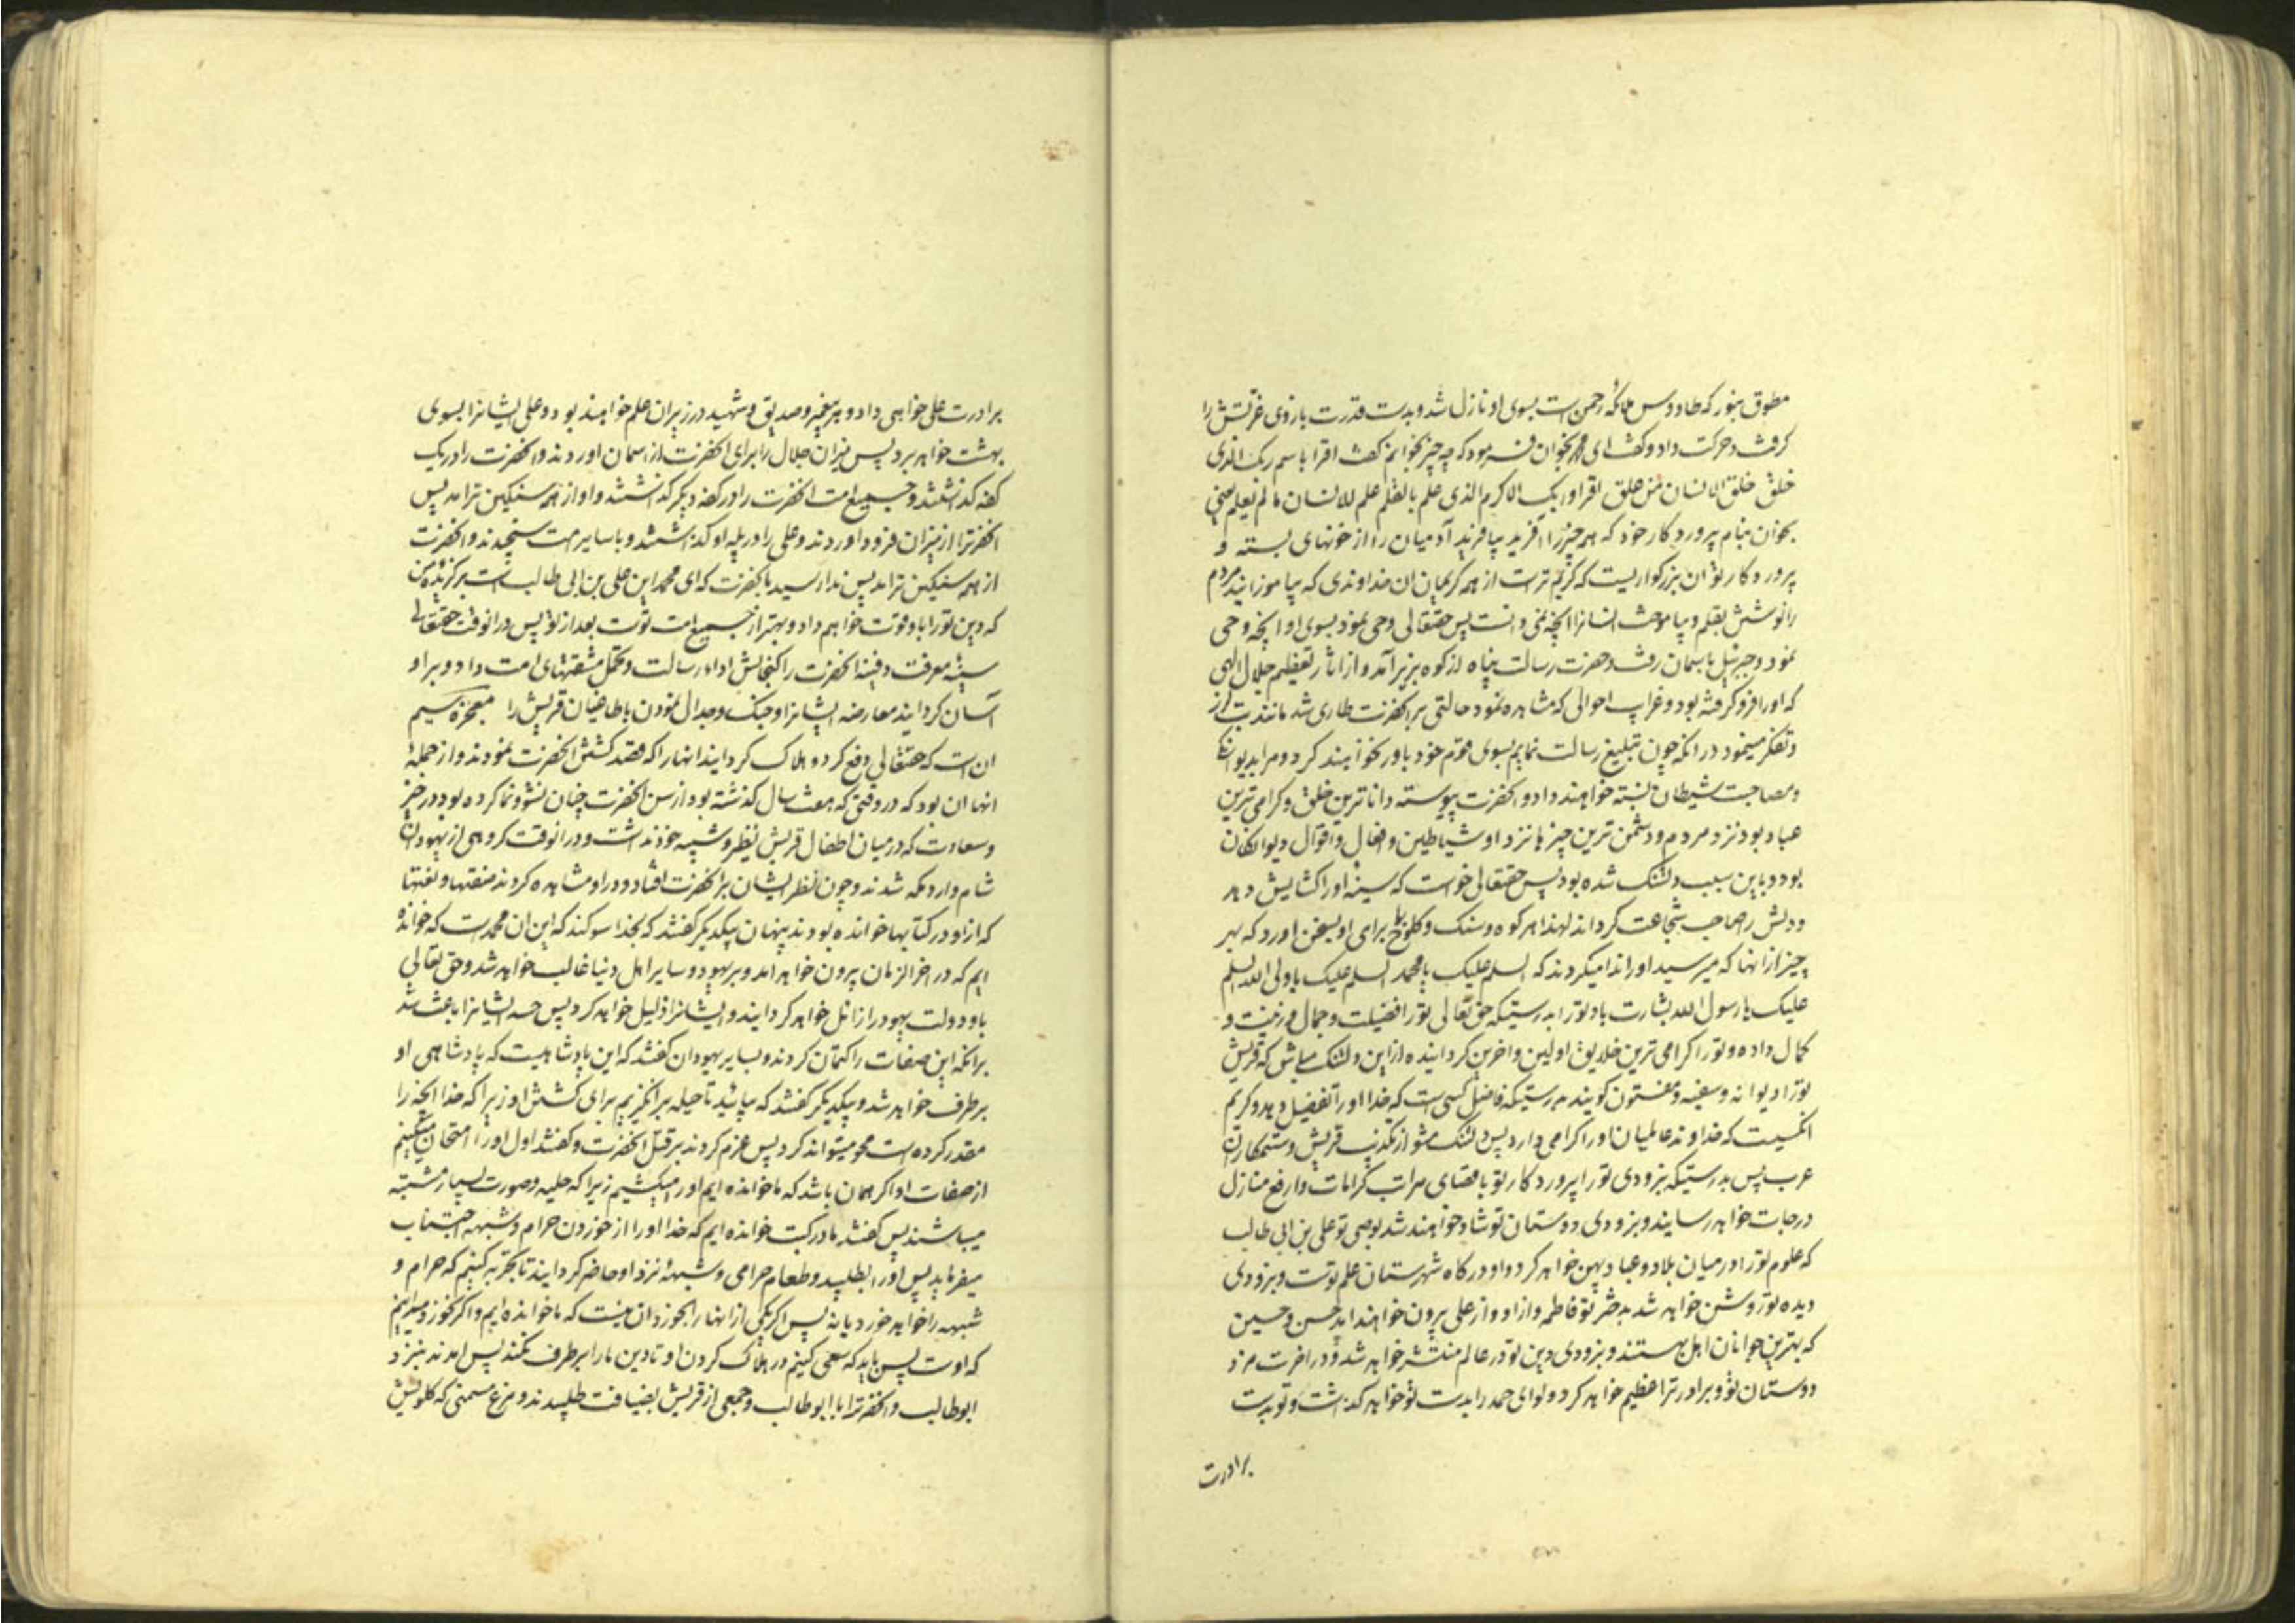 مطوق بنور که طاووس ملائکه رحمن است بسوی او نازل شد و بدست قدرت بازوی عزتش را
کرفت و حرکت داد و کفت ای محمد بخوان فرمود که چه چیز بخوانم کفت اقرا باسم ربک الذی
خلق خلق الانسان من علق اقرا و ربک الاکرم الذی علم بالقلم علم للانسان ما لم یعلم یعنی
بخوان بنام پروردکار خود که همه چیز را آفرید بیافرید آدمیان را از خونهای بسته و
پروردکار تو ان بزرکواریست که کریم ترست از همه کریمان ان خداوندی که بیاموزانید مردم
را نوشتن بقلم و بیاموخت انسانرا انچه نمی دانست پس حقتعالی وحی نمود بسوی او انچه وحی
نمود و جبرئیل باسمان رفت و حضرت رسالت پناه از کوه بزیر آمد و از اثار تعظیم جلال الهی
که او را فرو کرفته بود و غرایب احوالی که مشاهده نمود حالتی بر انحضرت طاری شد مانند تب لرز
و تفکر مینمود در انکه چون تبلیغ رسالت نمایم بسوی قوم خود باور نخواهند کرد و مرا بدیوانکی
و مصاحبت شیطان نسبته خواهند داد و انحضرت پیوسته داناترین خلق و کرامی ترین
عباد بود نزد مردم و دشمن ترین چیزها نزد او شیاطین و افعال و اقوال دیوانکان
بود و باین سبب دلتنک شده بود پس حقتعالی خواست که سینه او را کشایش دهد
و دلش را صاحب شجاعت کرداند لهذا هر کوه و سنک و کلوخ را برای او بسخن اورد که بهر
چیز از انها که میرسید او را ندا میکردند که السلم علیک یا محمد السلم علیک یا ولی الله السلم
علیک یا رسول الله بشارت باد تو را بدرستیکه حق تعالی تو را فضیلت و جمال و زینت و
کمال داده و تو را کرامی ترین خلایق اولین و اخرین کردانیده از این دلتنک مباش که قریش
تو را دیوانه و سفیه و مفتون کویند بدرستیکه فاضل کسی است که خدا او را تفضیل دهد و کریم
انکسیت که خداوند عالمیان او را کرامی دارد پس دلتنک مشو از تکذیب قریش و ستمکاران
عرب پس بدرستیکه بزودی تو را پروردکار تو باقصای مراتب کرامات و ارفع منازل
درجات خواهد رسانید و بزودی دوستان تو شاد خواهند شد بوصی تو علی بن ابی طالب
که علوم تو را در میان بلاد و عباد پهن خواهد کرد و او درکاه شهرستان علم توست و بزودی
دیده تو روشن خواهد شد بدختر تو فاطمه و از او و از علی بیرون خواهند امد حسن و حسین
که بهترین جوانان اهل بهشتند و بزودی دین تو در عالم منتشر خواهد شد و در اخرت مزد
دوستان تو و برادر ترا عظیم خواهد کرد و لوای حمد را بدست تو خواهد کذاشت و تو بدست
برادرت
برادرت علی خواهی داد و هر پیغمبر و صدیق و شهید در زیر ان علم خواهند بود و علی ایشانرا بسوی
بهشت خواهد برد پس میزان جلال را برای انحضرت از اسمان اوردند و انحضرت را در یک
کفه کذاشتند و جمیع امت انحضرت را در کفه دیکر کذاشتند و او از همه سنکین تر امد پس
انحضرترا از میزان فرود اوردند و علی را در پله او کذاشتند و با سایر امت سنجیدند و انحضرت
از همه سنکین تر امد پس ندا رسید بانحضرت که ای محمد این علی بن ابی طالب است برکزیده من
که دین تو را باو قوت خواهم داد و بهتر از جمیع امت توست بعد از تو پس در انوقت حقتعالی
سینه معرفت دفینه انحضرت را کنجایش اداء رسالت و تحمل مشقتهای امت داد و بر او
آسان کردانید معارضه ایشانرا و جنک و جدال نمودن با طاغیان قریش را معجزه سیم
ان است که حقتعالی دفع کرد و هلاک کردانید انها را که قصد کشتن انحضرت نمودند و از جمله
انها ان بود که در وقتی که هفت سال کذشته بود از سن انحضرت چنان نشو و نما کرده بود در خیر
و سعادت که در میان اطفال قریش نظیر و شبیه خود نداشت و در انوقت کروهی از یهودان
شام وارد مکه شدند و چون نظر ایشان بر انحضرت افتاد و در او مشاهده کردند صفتها و نعتها
که از او در کتابها خوانده بودند پنهان بیکدیکر کفتند که بخدا سوکند که این ان محمدست که خوانده
ایم که در اخر الزمان بیرون خواهد امد و بر یهود و سایر اهل دنیا غالب خواهد شد و حق تعالی
باو دولت یهود را زائل خواهد کردانید و ایشانرا ذلیل خواهد کرد پس حسد ایشانرا باعث شد
بر انکه این صفات را کتمان کردند و بسایر یهودان کفتند که این پادشاهیست که پادشاهی او
برطرف خواهد شد و بیکدیکر کفتند که بیائید تا حیله بر انکیزیم برای کشتن او زیرا که خدا انچه را
مقدر کرده است محو میتواند کرد پس عزم کردند بر قتل انحضرت و کفتند اول او را امتحان میکنیم
از صفات او اکر همان باشد که ما خوانده ایم او را میکشیم زیرا که حلیه و صورت بسیار مشتبه
میباشند پس کفتند ما در کتب خوانده ایم که خدا او را از خوردن حرام و شبهه اجتناب
میفرماید پس او را بطلبید و طعام حرامی و شبهه نزد او حاضر کردانید تا تجربه کنیم که حرام و
شبهه را خواهد خورد یا نه پس اکر یکی از انها را بخورد ان نیست که ما خوانده ایم و اکر نخورد میدانیم
که اوست پس باید که سعی کنیم در هلاک کردن او تا دین ما را برطرف نکند پس امدند بنزد
ابوطالب و انحضرترا با ابوطالب و جمعی از قریش بضیافت طلبیدند و مرغ مسمنی که کلویش